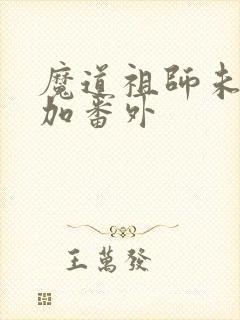 魔道祖師未
加番外
王萬發